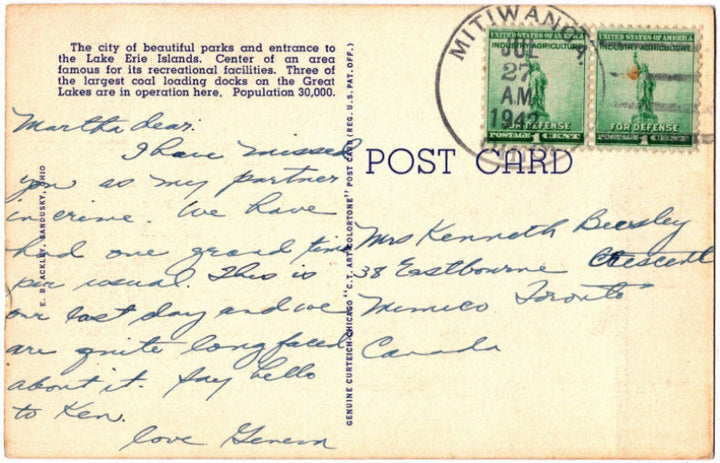 The city of beautiful parks and entrance to
the Lake Erie Islands. Center of an area
famous for its recreational facilities. Three of
the largest coal loading docks on the Great
Lakes are in operation here. Population 30,000.
Martha dear:
I have missed
you as my partner
in crime. We have
had one grand time
per usual. This is
our last day and we
are quite long faced
about it. Say hello
to Ken.
love Geneva
E. B. ACKLEY, SANDUSKY, OHIO
GENUINE CURTEICH-CHICAGO "C. T. ART-COLORTONE" POST CARD (REG. U. S. PAT. OFF.)
MITIWANGA
JUL
27
A.M.
1942
UNITED STATES OF AMERICA
INDUSTRY AGRICULTURE
FOR DEFENSE
POSTAGE 1 CENT
UNITED STATES OF AMERICA
INDUSTRY AGRICULTURE
FOR DEFENSE
POSTAGE 1 CENT
POST CARD
Mrs Kenneth Beesley
38 Eastbourne Crescent
Mimico Toronto
Canada